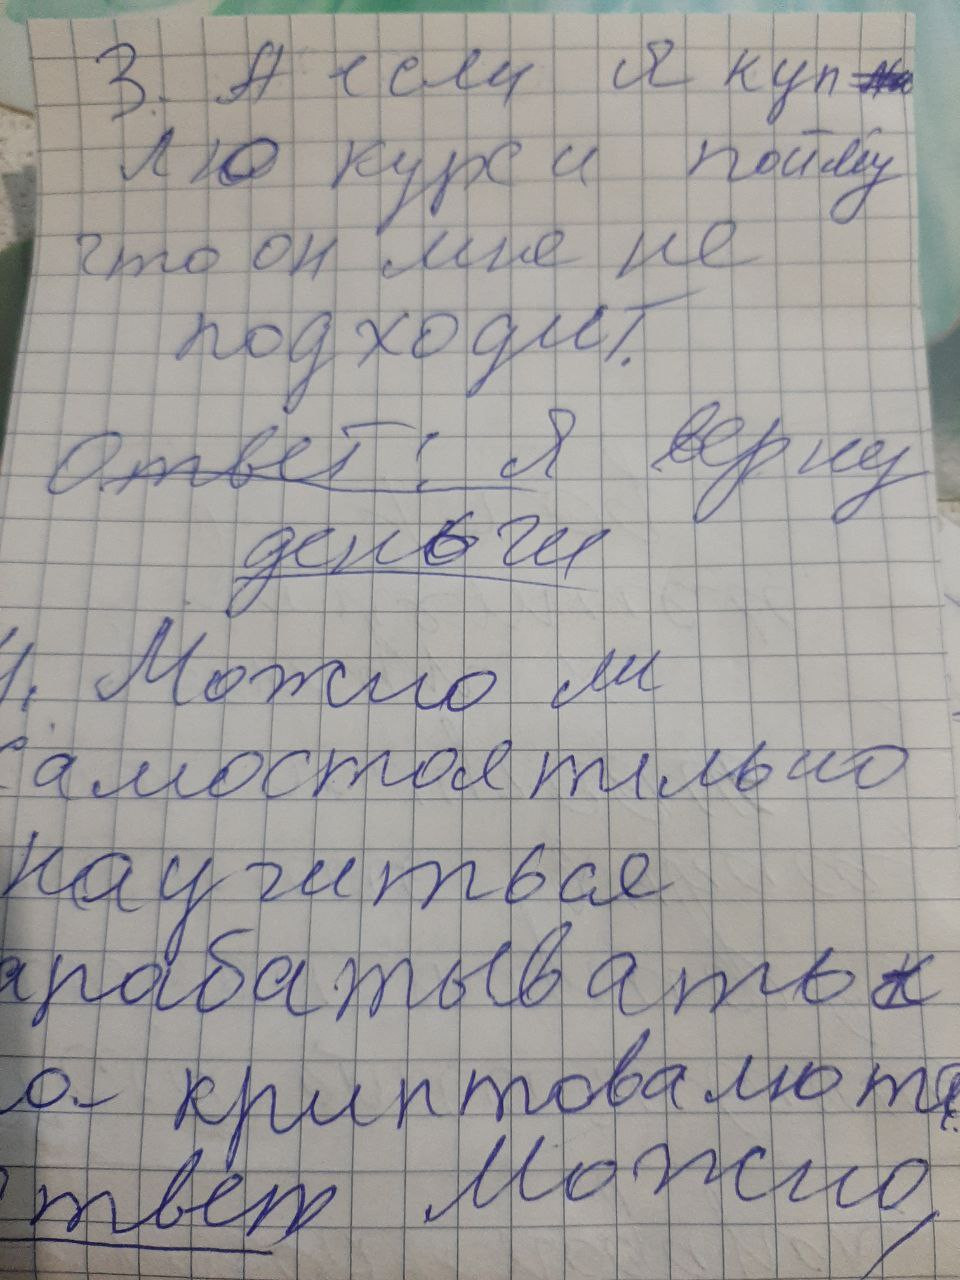 3. А если я куп
лю курс и пойму
что он мне не
подходит.
Ответ: я верну
деньги
4. Можно ли
самостоятельно
научиться
зарабатывать
на криптовалюте
Ответ Можно,